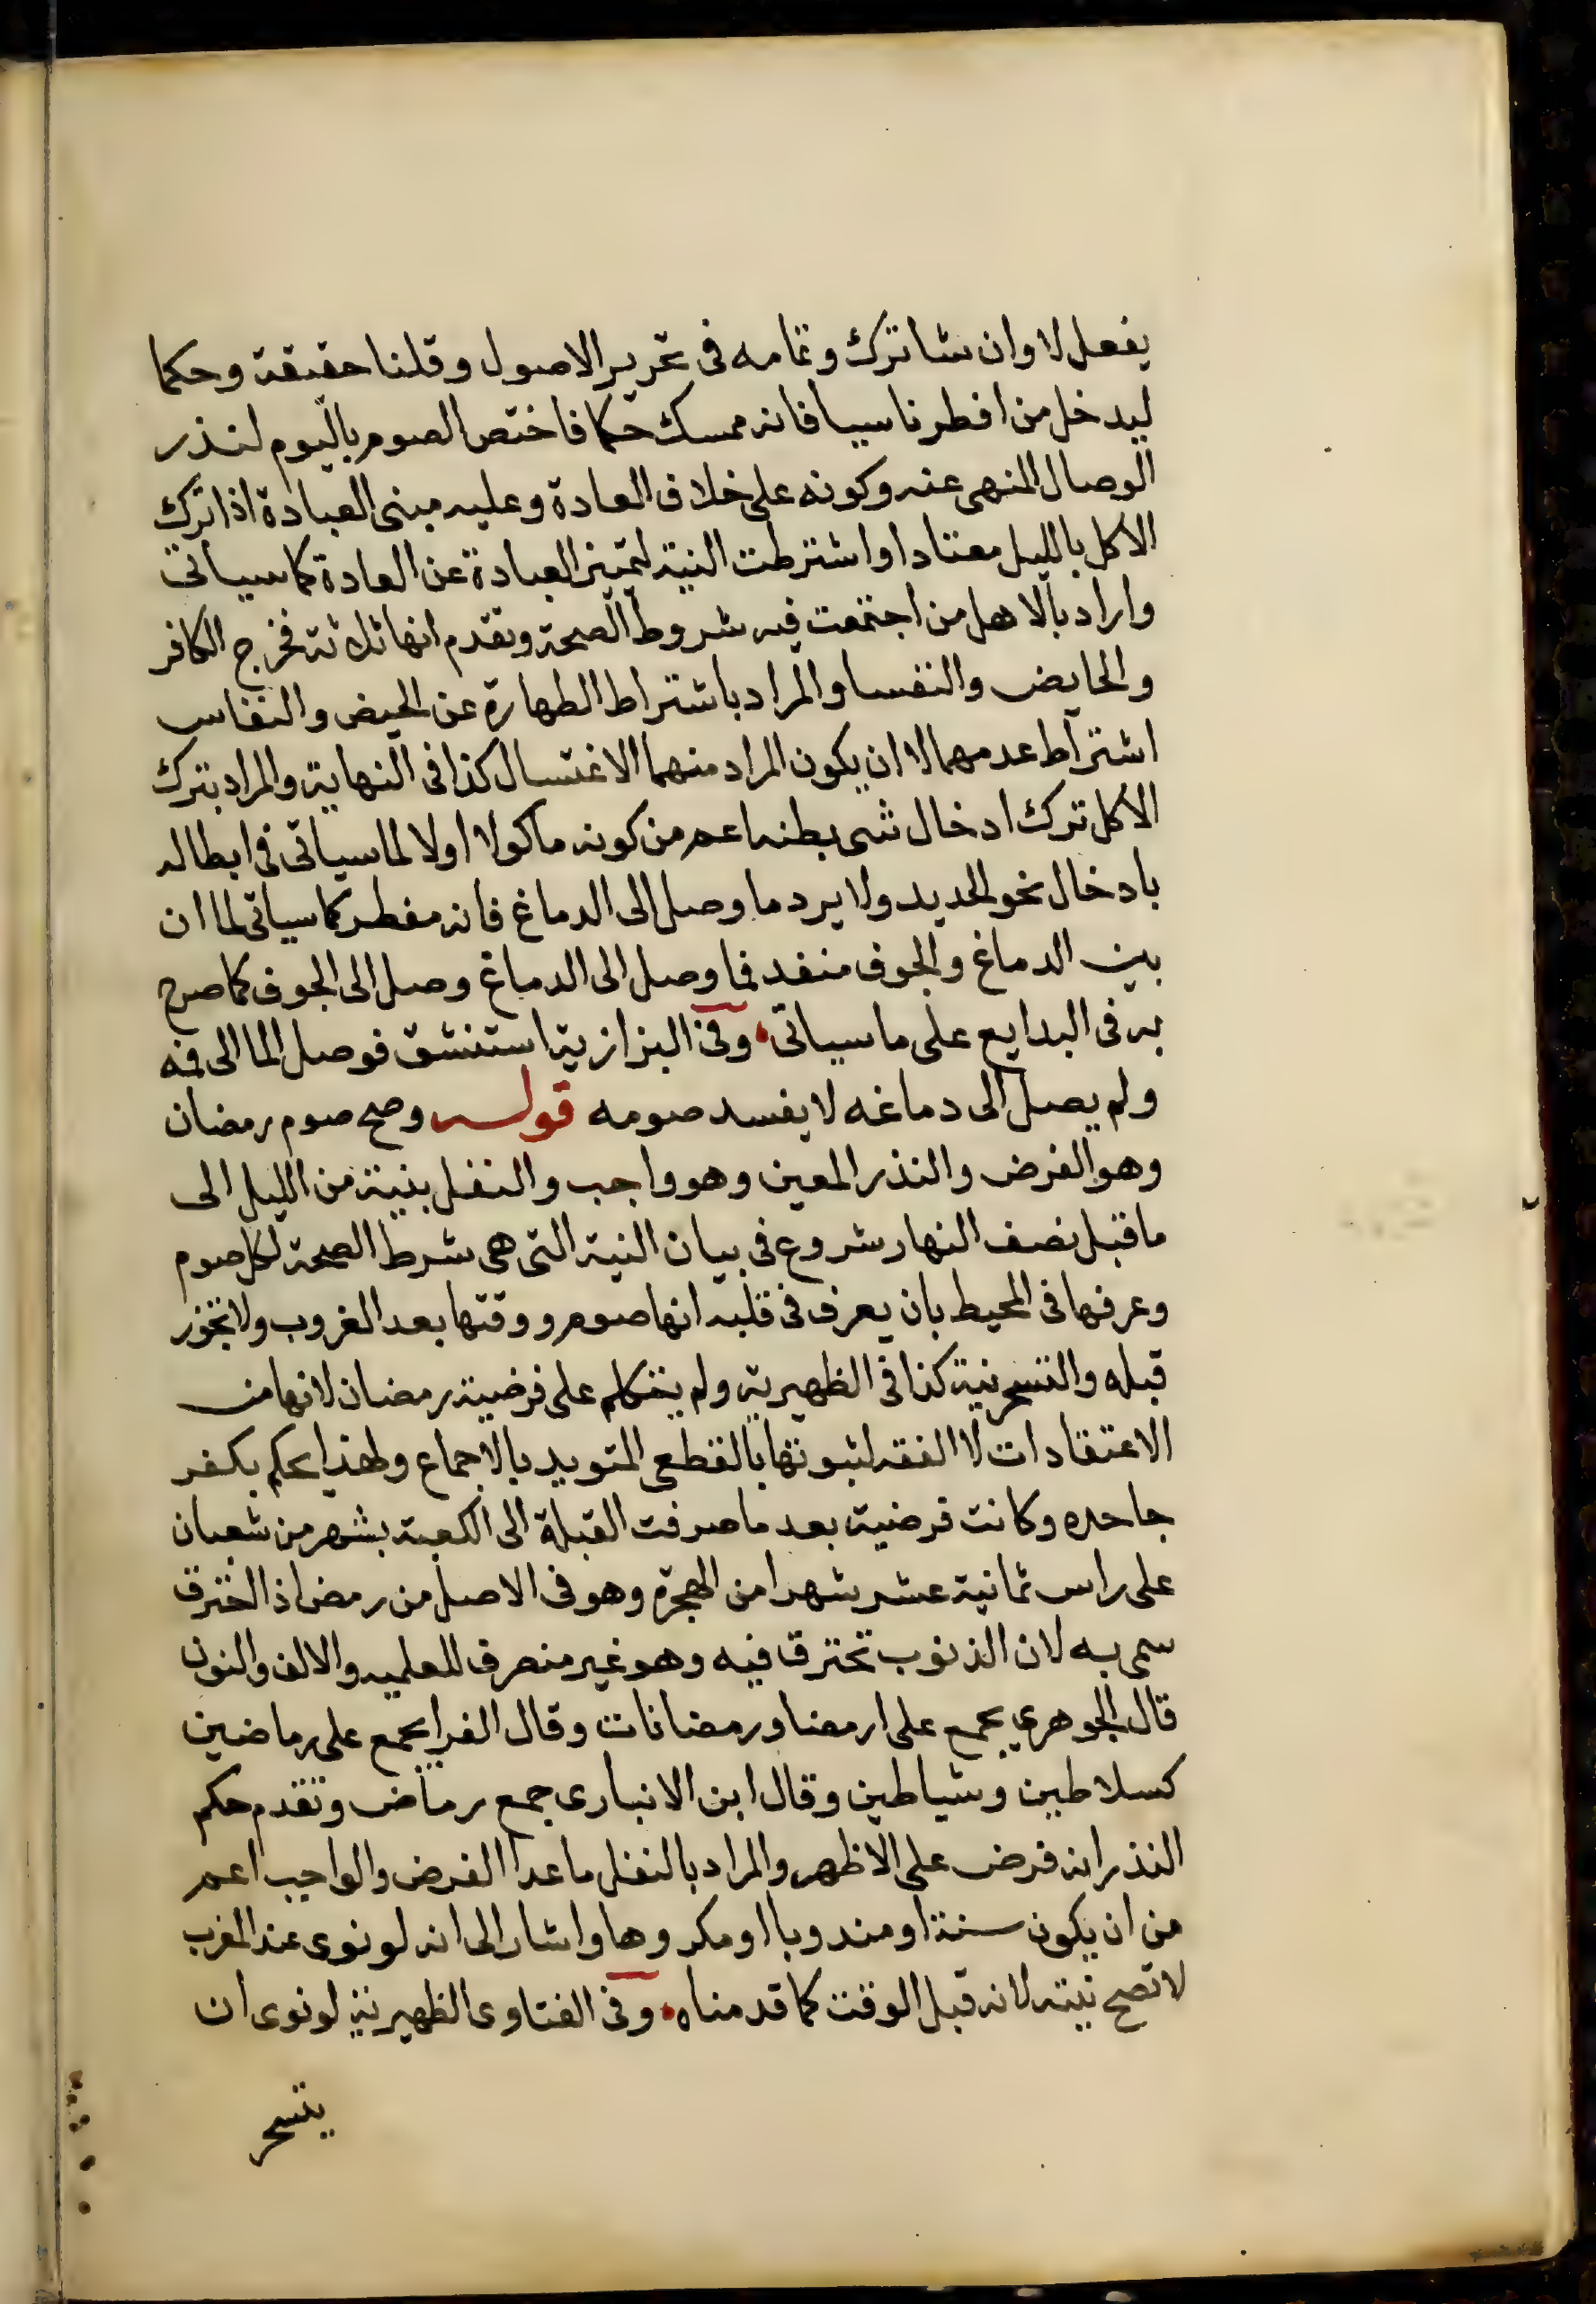 يفعل لا وان شا ترك وتمامه فى تحرير الاصول وقلنا حقيقة وحكما
ليدخل من افطر ناسيا فانه ممسك حكما فاختص الصوم باليوم لتذر
الوصال المنهى عنه وكونه على خلاف العادة وعليه مبنى العبادة اذا ترك
الاكل بالليل معتادا واشترطت النية لتميز العبادة عن العادة كما سياتى
واراد بالاهل من اجتمعت فيه شروط الصحة وتقدم انها ثلاثة فخرج الكافر
والحايض والنفسا والمراد باشتراط الطهارة عن الحيض والنفاس
اشتراط عدمهما لا ان يكون المراد منهما الاغتسال كذا فى النهاية والمراد بترك
الاكل ترك ادخال شى بطنه اعم من كونه ماكولا اولا لما سياتى فى ابطاله
بادخال نحو الحديد ولا يرد ما وصل الى الدماغ فانه مفطر كما سياتى لما ان
بين الدماغ والجوف منفد فما وصل الى الدماغ وصل الى الجوف كما صرح
به فى البدايع على ما سياتى وفى البزازية استنشق فوصل الما الى فمه
ولم يصل الى دماغه لا يفسد صومه قوله وصح صوم رمضان
وهو الفرض والنذر المعين وهو واجب والنفل بنية من الليل الى
ما قبل نصف النهار شروع فى بيان النية التى هى شرط الصحة لكل صوم
وعرفها فى المحيط بان يعرف فى قلبه انها صوم ووقتها بعد الغروب ولا تجوز
قبله والتسحر نية كذا فى الظهيرية ولم يتكلم على فرضية رمضان لانها من
الاعتقادات لا الفقه لثبوتها بالقطعى المتويد بالاجماع ولهذا يحكم بكفر
جاحده وكانت فرضية بعد ما صرفت القبلة الى الكعبة بشهر من شعبان
على راس ثمانية عشر شهرا من الهجرة وهو فى الاصل من رمض اذا احترق
سمى به لان الذنوب تحترق فيه وهو غير منصرف للعلميه والالف والنون
قال الجوهري يجمع على ارمضا ورمضانات وقال الفرا يجمع على رماضين
كسلاطين وشياطين وقال ابن الانبارى جمع رماض وتقدم حكم
النذر انه فرض على الاظهر والمراد بالنفل ما عدا الفرض والواجب اعم
من ان يكون سنة او مندوبا او مكروها واشار الى انه لو نوى عند المغرب
لا تصح نيته لانه قبل الوقت كما قدمناه وفى الفتاوى الظهيرية لو نوى ان
يتسحر